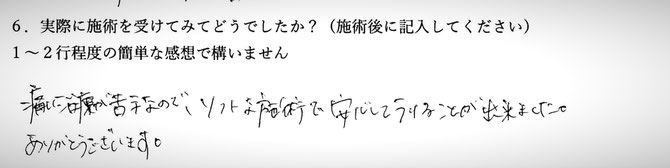 ６．実際に施術を受けてみてどうでしたか？（施術後に記入してください）
１～２行程度の簡単な感想で構いません
痛い治療が苦手なので、ソフトな施術で安心してうけることが出来ました。
ありがとうございます。